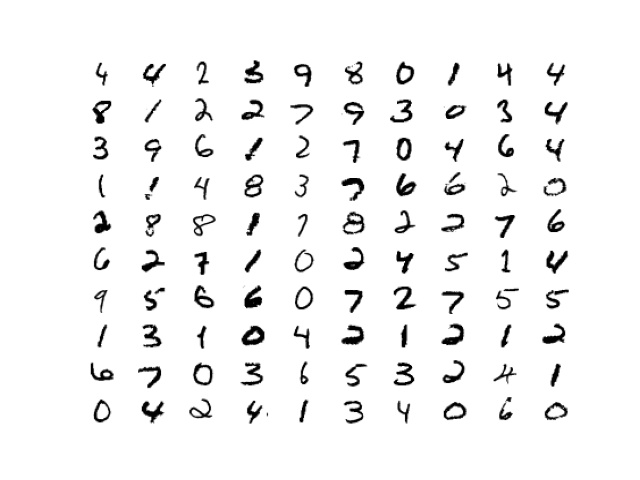 4 4 2 3 9 8 0 1 4 4
8 1 2 2 7 9 3 0 3 4
3 9 6 1 2 7 0 4 6 4
1 1 4 8 3 7 6 6 2 0
2 8 8 1 7 8 2 2 7 6
6 2 7 1 0 2 4 5 1 4
9 5 6 6 0 7 2 7 5 5
1 3 1 0 4 2 1 2 1 2
6 7 0 3 6 5 3 2 4 1
0 4 2 4 1 3 4 0 6 0